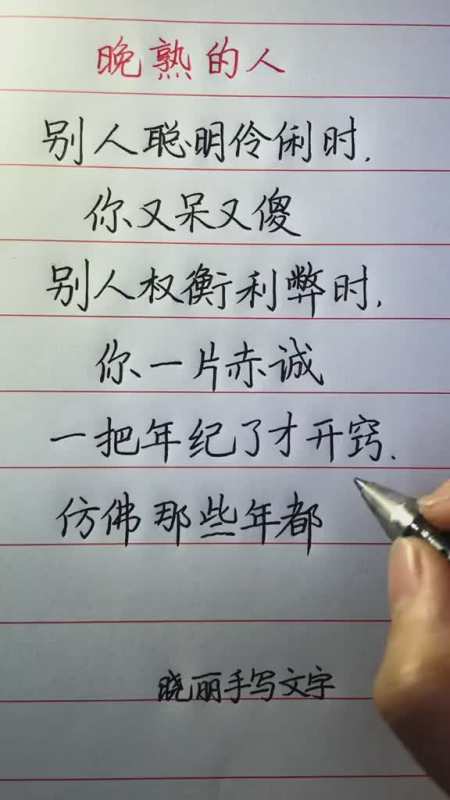 晚熟的人
别人聪明伶俐时.
你又呆又傻
别人权衡利弊时.
你一片赤诚
一把年纪了才开窍.
仿佛那些年都
晓丽手写文字